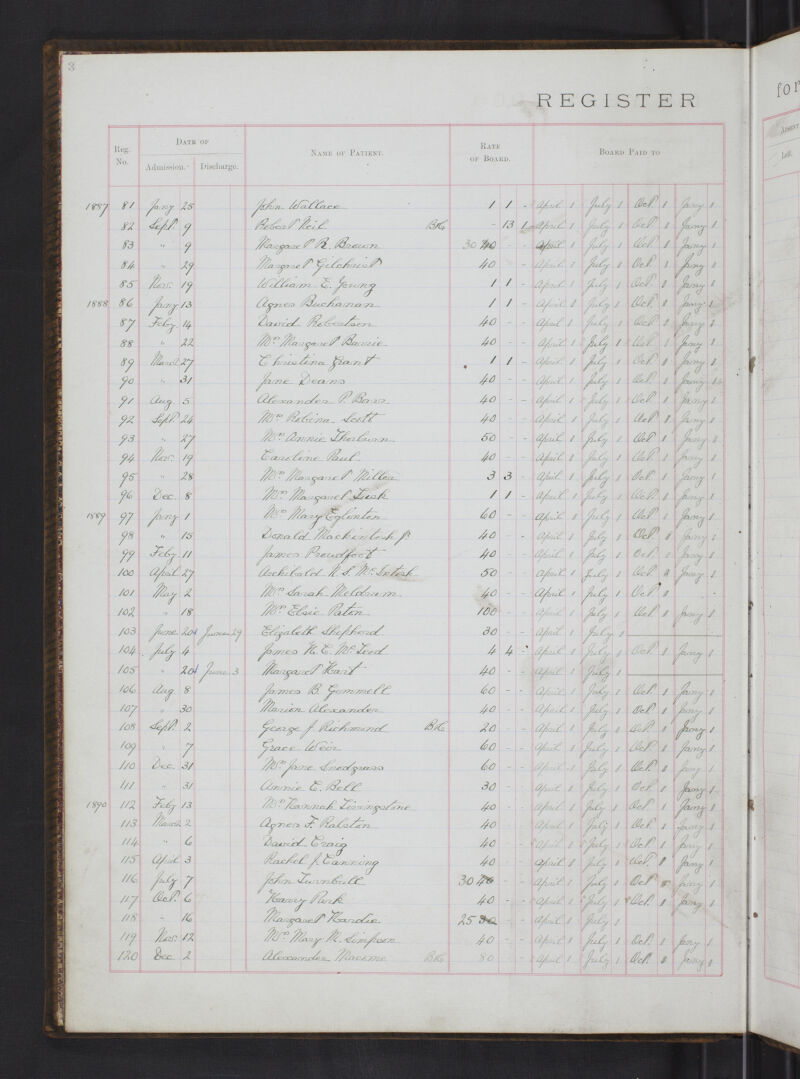 3
REGISTER
for
Reg. No. DATE OF Admission. Discharge. NAME OF PATIENT. RATE OF BOARD. BOARD PAID TO
Left.
1887 81 Jany 25 John Wallace 1 1 - April 1 July 1 Oct 1 Jany 1
82 Sept 9 Robert Neil - 13 1 April 1 July 1 Oct 1 Jany 1
83 " 9 Margaret R. Brown 30 40 - - April 1 July 1 Oct 1 Jany 1
84 " 29 Margaret Gilchrist 40 - - April 1 July 1 Oct 1 Jany 1
85 Nov. 19 William E. Young 1 1 - April 1 July 1 Oct 1 Jany 1
1888 86 Jany 13 Agnes Buchanan 1 1 - April 1 July 1 Oct 1 Jany 1
87 Feby 14 David Robertson 40 - - April 1 July 1 Oct 1 Jany 1
88 " 22 Mrs Margaret Barrie 40 - - April 1 July 1 Oct 1 Jany 1
89 March 27 Christina Grant 1 1 - April 1 July 1 Oct 1 Jany 1
90 " 31 Jane Deans 40 - - April 1 July 1 Oct 1 Jany 1
91 Aug. 5 Alexander P. Barr 40 - - April 1 July 1 Oct 1 Jany 1
92 Sept. 24 Mrs Robina Scott 40 - - April 1 July 1 Oct 1 Jany 1
93 " 27 Mrs Annie Thorburn 50 - - April 1 July 1 Oct 1 Jany 1
94 Nov. 19 Caroline Paul 40 - - April 1 July 1 Oct 1 Jany 1
95 " 28 Mrs Margaret Miller 3 3 - April 1 July 1 Oct 1 Jany 1
96 Dec. 8 Mrs Margaret Lusk 1 1 - April 1 July 1 Oct 1 Jany 1
1889 97 Jany 1 Mrs Mary Eglinton 60 - - April 1 July 1 Oct 1 Jany 1
98 " 15 Donald Mackintosh Jr 40 - - April 1 July 1 Oct 1 Jany 1
99 Feby 11 James Proudfoot 40 - - April 1 July 1 Oct 1 Jany 1
100 April 27 Archibald K. S. McIntosh 50 - - April 1 July 1 Oct 1 Jany 1
101 May 2 Mrs Sarah Meldrum 40 - - April 1 July 1 Oct 1 - -
102 " 18 Mrs Elsie Paton 100 - - April 1 July 1 Oct 1 Jany 1
103 June 20 June 29 Elizabeth Shepherd 30 - - April 1 July 1
104 July 4 James H. C. McLeod 4 4 - April 1 July 1 Oct 1 Jany 1
105 " 20 June 3 Margaret Hart 40 - - April 1 July 1
106 Aug. 8 James B. Gemmell 60 - - April 1 July 1 Oct 1 Jany 1
107 " 30 Marion Alexander 40 - - April 1 July 1 Oct 1 Jany 1
108 Sept. 2 George J. Richmond 20 - - April 1 July 1 Oct 1 Jany 1
109 " 7 Grace Weir 60 - - April 1 July 1 Oct 1 Jany 1
110 Dec. 31 Mrs Jane Snodgrass 60 - - April 1 July 1 Oct 1 Jany 1
111 " 31 Annie C. Bell 30 - - April 1 July 1 Oct 1 Jany 1
1890 112 Feby 13 Mrs Hannah Livingstone 40 - - April 1 July 1 Oct 1 Jany 1
113 March 2 Agnes F. Ralston 40 - - April 1 July 1 Oct 1 Jany 1
114 " 6 David Craig 40 - - April 1 July 1 Oct 1 Jany 1
115 April 3 Rachel J. Canning 40 - - April 1 July 1 Oct 1 Jany 1
116 July 7 John Turnbull 30 40 - - April 1 July 1 Oct 1 Jany 1
117 Oct. 6 Harry Park 40 - - April 1 July 1 Oct 1 Jany 1
118 " 16 Margaret Hardie 25 30 - - April 1 July 1
119 Nov. 12 Mrs Mary M. Simpson 40 - - April 1 July 1 Oct. 1 Jany 1
120 Dec 2 Alexander 80 - - April 1 July 1 Oct. 1 Jany 1